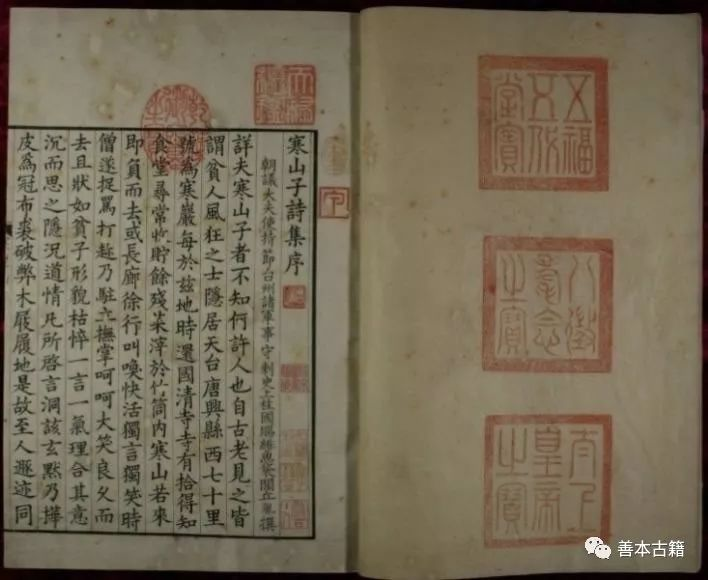 五福
五代
堂寶
八徵
耄念
之寶
太上
皇帝
之寶
天祿
繼鑑
乾隆御覽之寶
寒山子詩集序
朝議大夫使持節台州諸軍事守刺史上柱國賜緋魚袋閭丘胤撰
詳夫寒山子者不知何許人也自古老見之皆
謂貧人風狂之士隱居天台唐興縣西七十里
號為寒巖每於茲地時還國清寺寺有拾得知
食堂尋常收貯餘殘菜滓於竹筒內寒山若來
即負而去或長廊徐行叫喚快活獨言獨笑時
僧遂捉罵打趁乃駐立撫掌呵呵大笑良久而
去且狀如貧子形貌枯悴一言一氣理合其意
沉而思之隱況道情凡所啓言洞該玄默乃樺
皮為冠布裘破弊木屐履地是故至人遯迹同
善本古籍